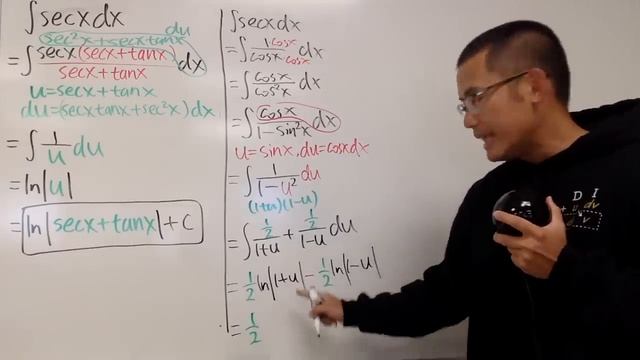 ∫secxdx
sec²x+secxtanx du
=∫ secx(secx+tanx) / secx+tanx dx
u=secx+tanx
du=(secxtanx+sec²x)dx
=∫ 1/u du
=ln|u|
=ln|secx+tanx|+C
∫secxdx
=∫ 1 cosx / cosx cosx dx
=∫ cosx / cos²x dx
=∫ cosx / 1-sin²x dx
u=sinx, du=cosxdx
=∫ 1 / 1-u² du
(1+u)(1-u)
=∫ 1/2 / 1+u + 1/2 / 1-u du
=1/2 ln|1+u| - 1/2 ln|1-u|
=1/2
D I
u dv